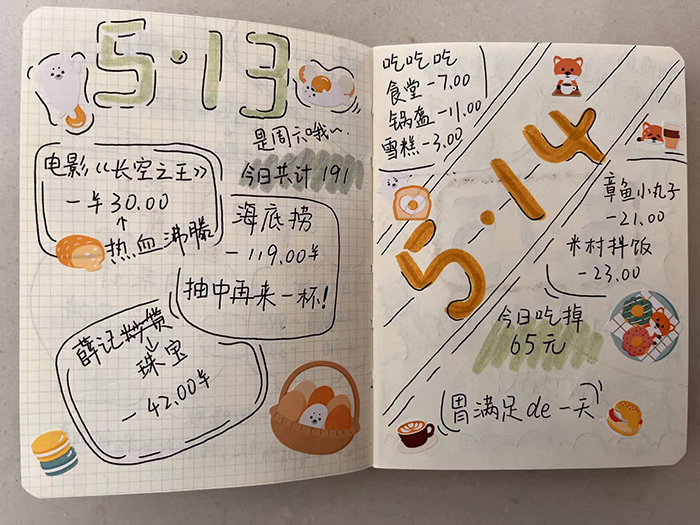 5·13
是周六哦~.
今日共计191
电影《长空之王》
-¥30.00
↑
热血沸腾
海底捞
-119.00¥
抽中再来一杯!
薛记炒货
珠宝
-42.00¥
吃吃吃
食堂-7.00
锅盔-11.00
雪糕-3.00
5·14
章鱼小丸子
-21.00
米村拌饭
-23.00
今日吃掉
65元
胃满足de一天